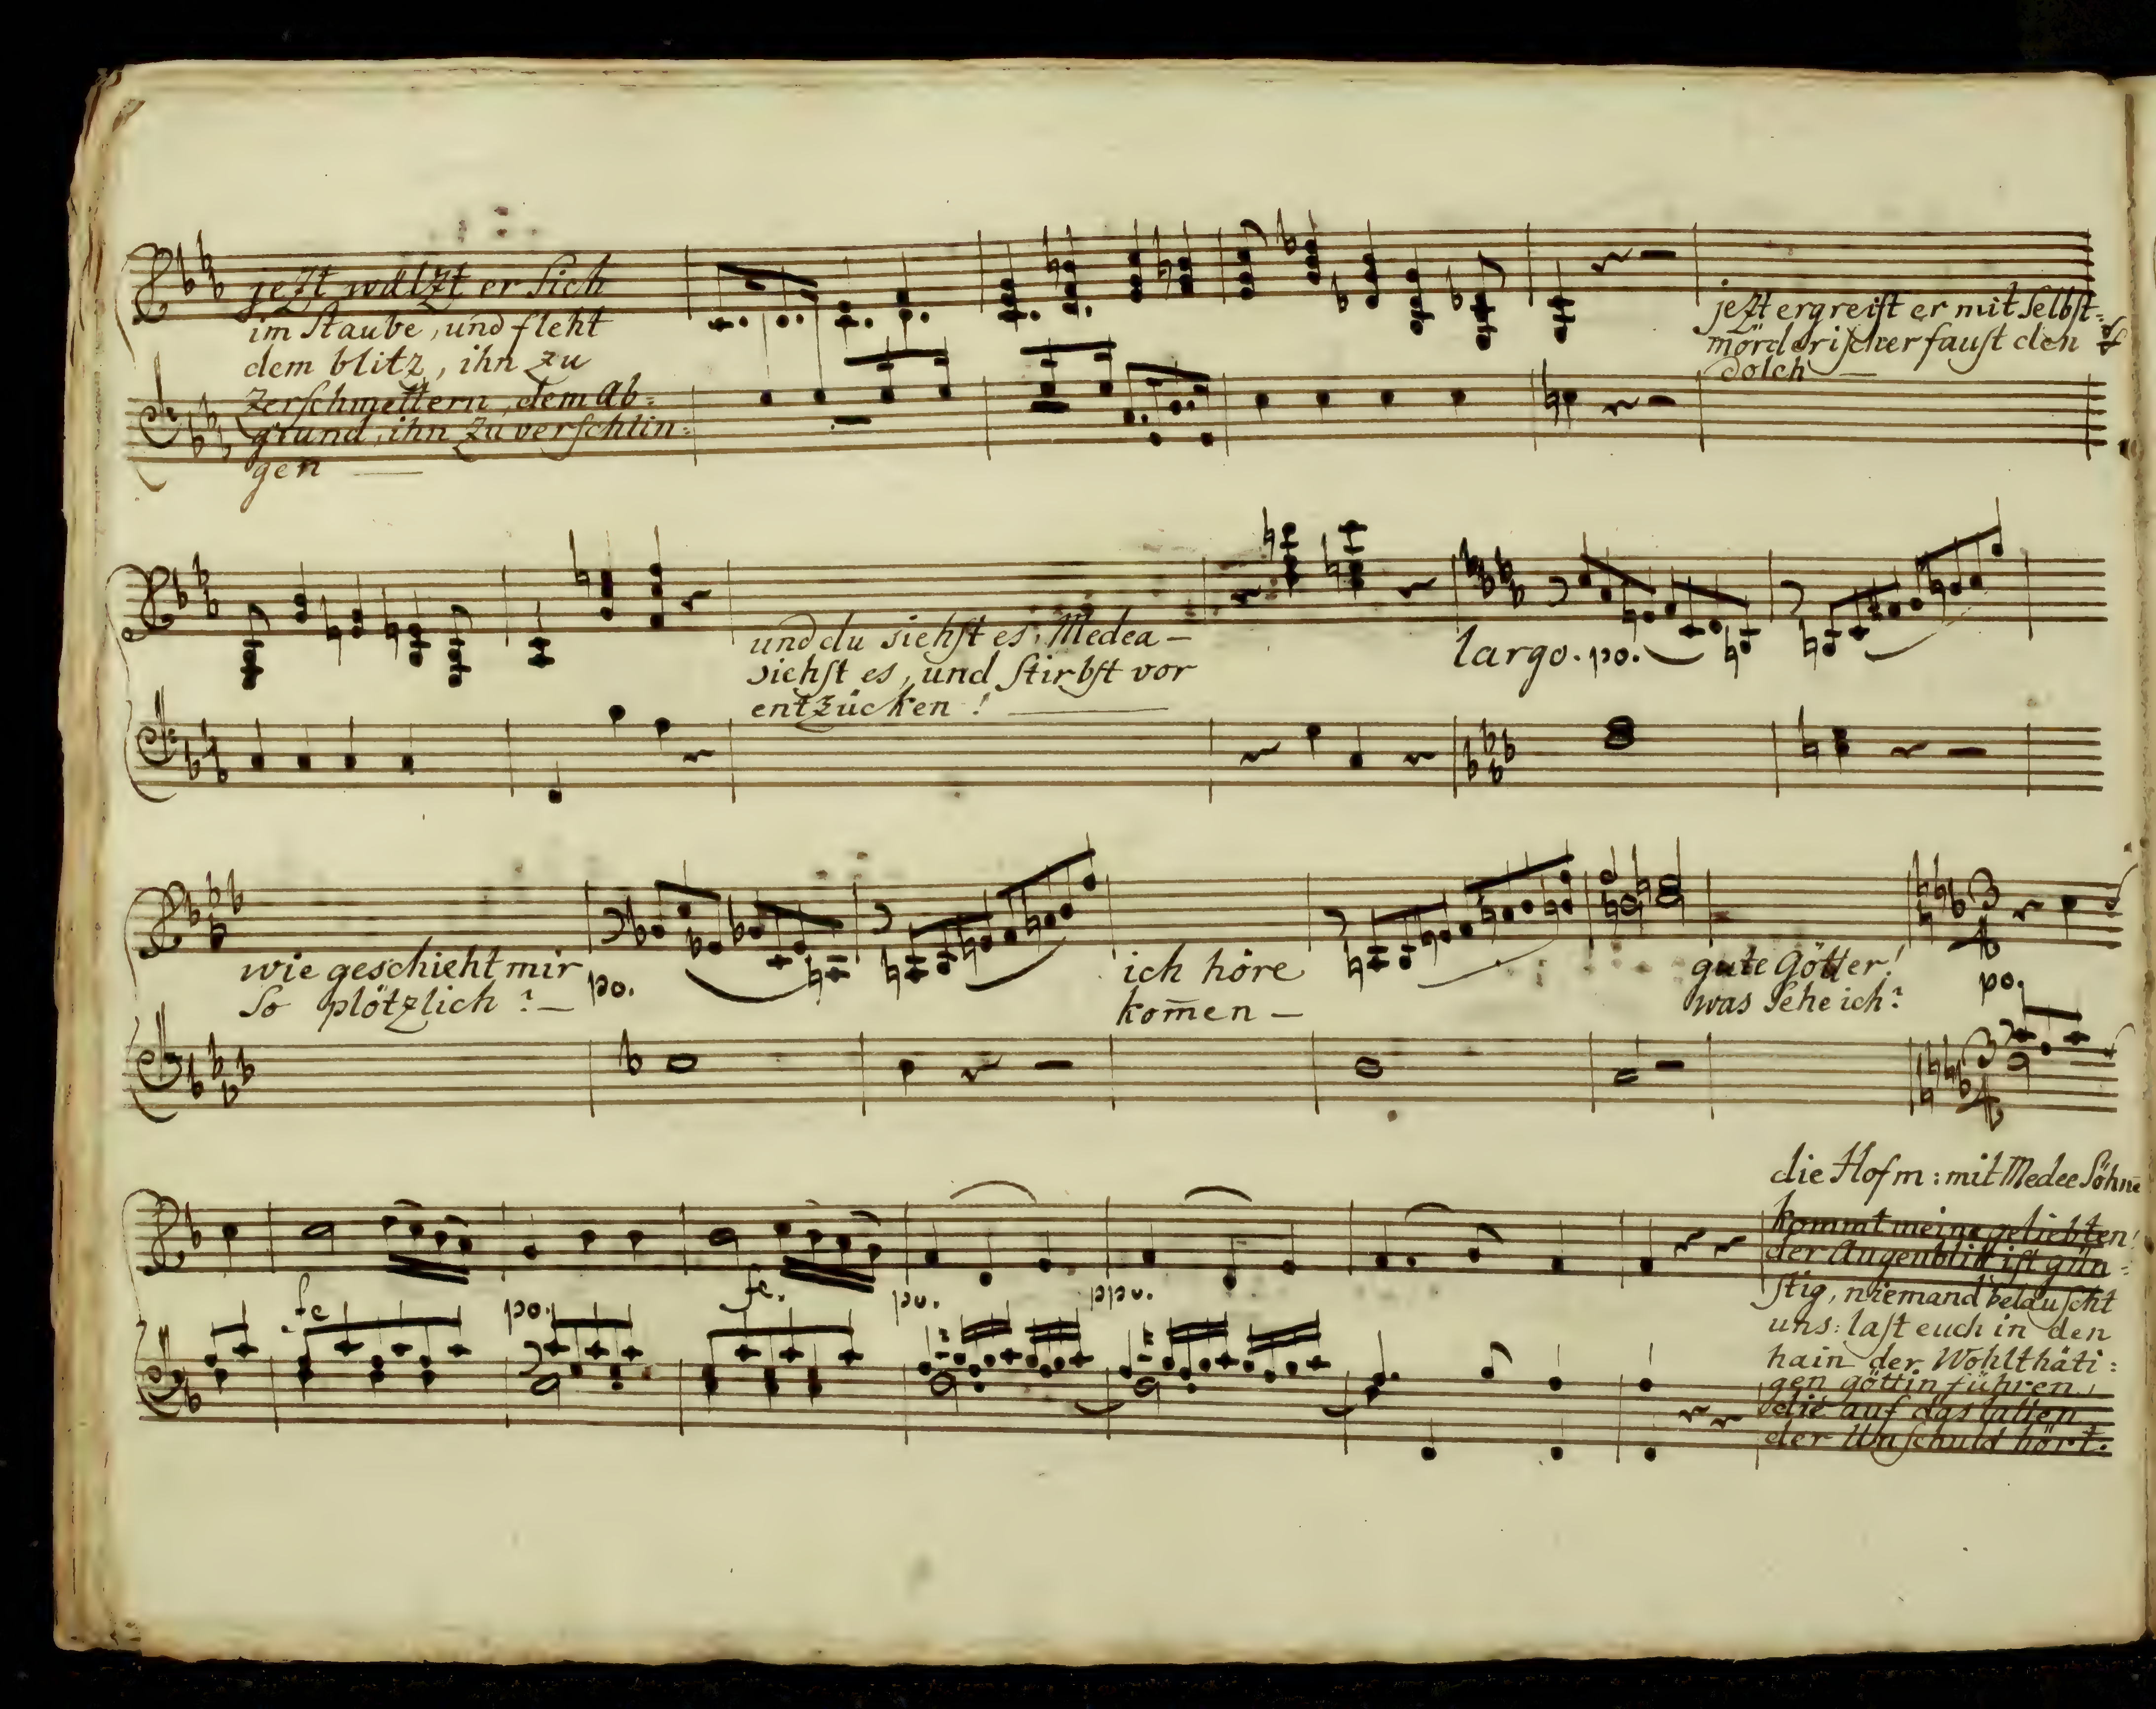 jezt wälzt er sich
im staube, und fleht
dem blitz, ihn zu
zerschmettern, dem ab=
grund, ihn zu verschlin=
gen —
jezt ergreift er mit selbst=
mörderischer faust den
dolch —
und du siehst es, Medea —
siehst es, und stirbst vor
entzücken! —
largo. po.
wie geschieht mir
so plötzlich? —
po.
ich höre
kom̄en —
gute Götter!
was sehe ich?
3/4
po.
die Hofm: mit Medee Söhne
kommt meine geliebten!
der Augenblik ist gün=
stig, niemand belauscht
uns: last euch in den
hain der Wohlthäti=
gen göttin führen,
die auf das lallen
der Unschuld hört.
fe
po.
fe.
po.
ppo.